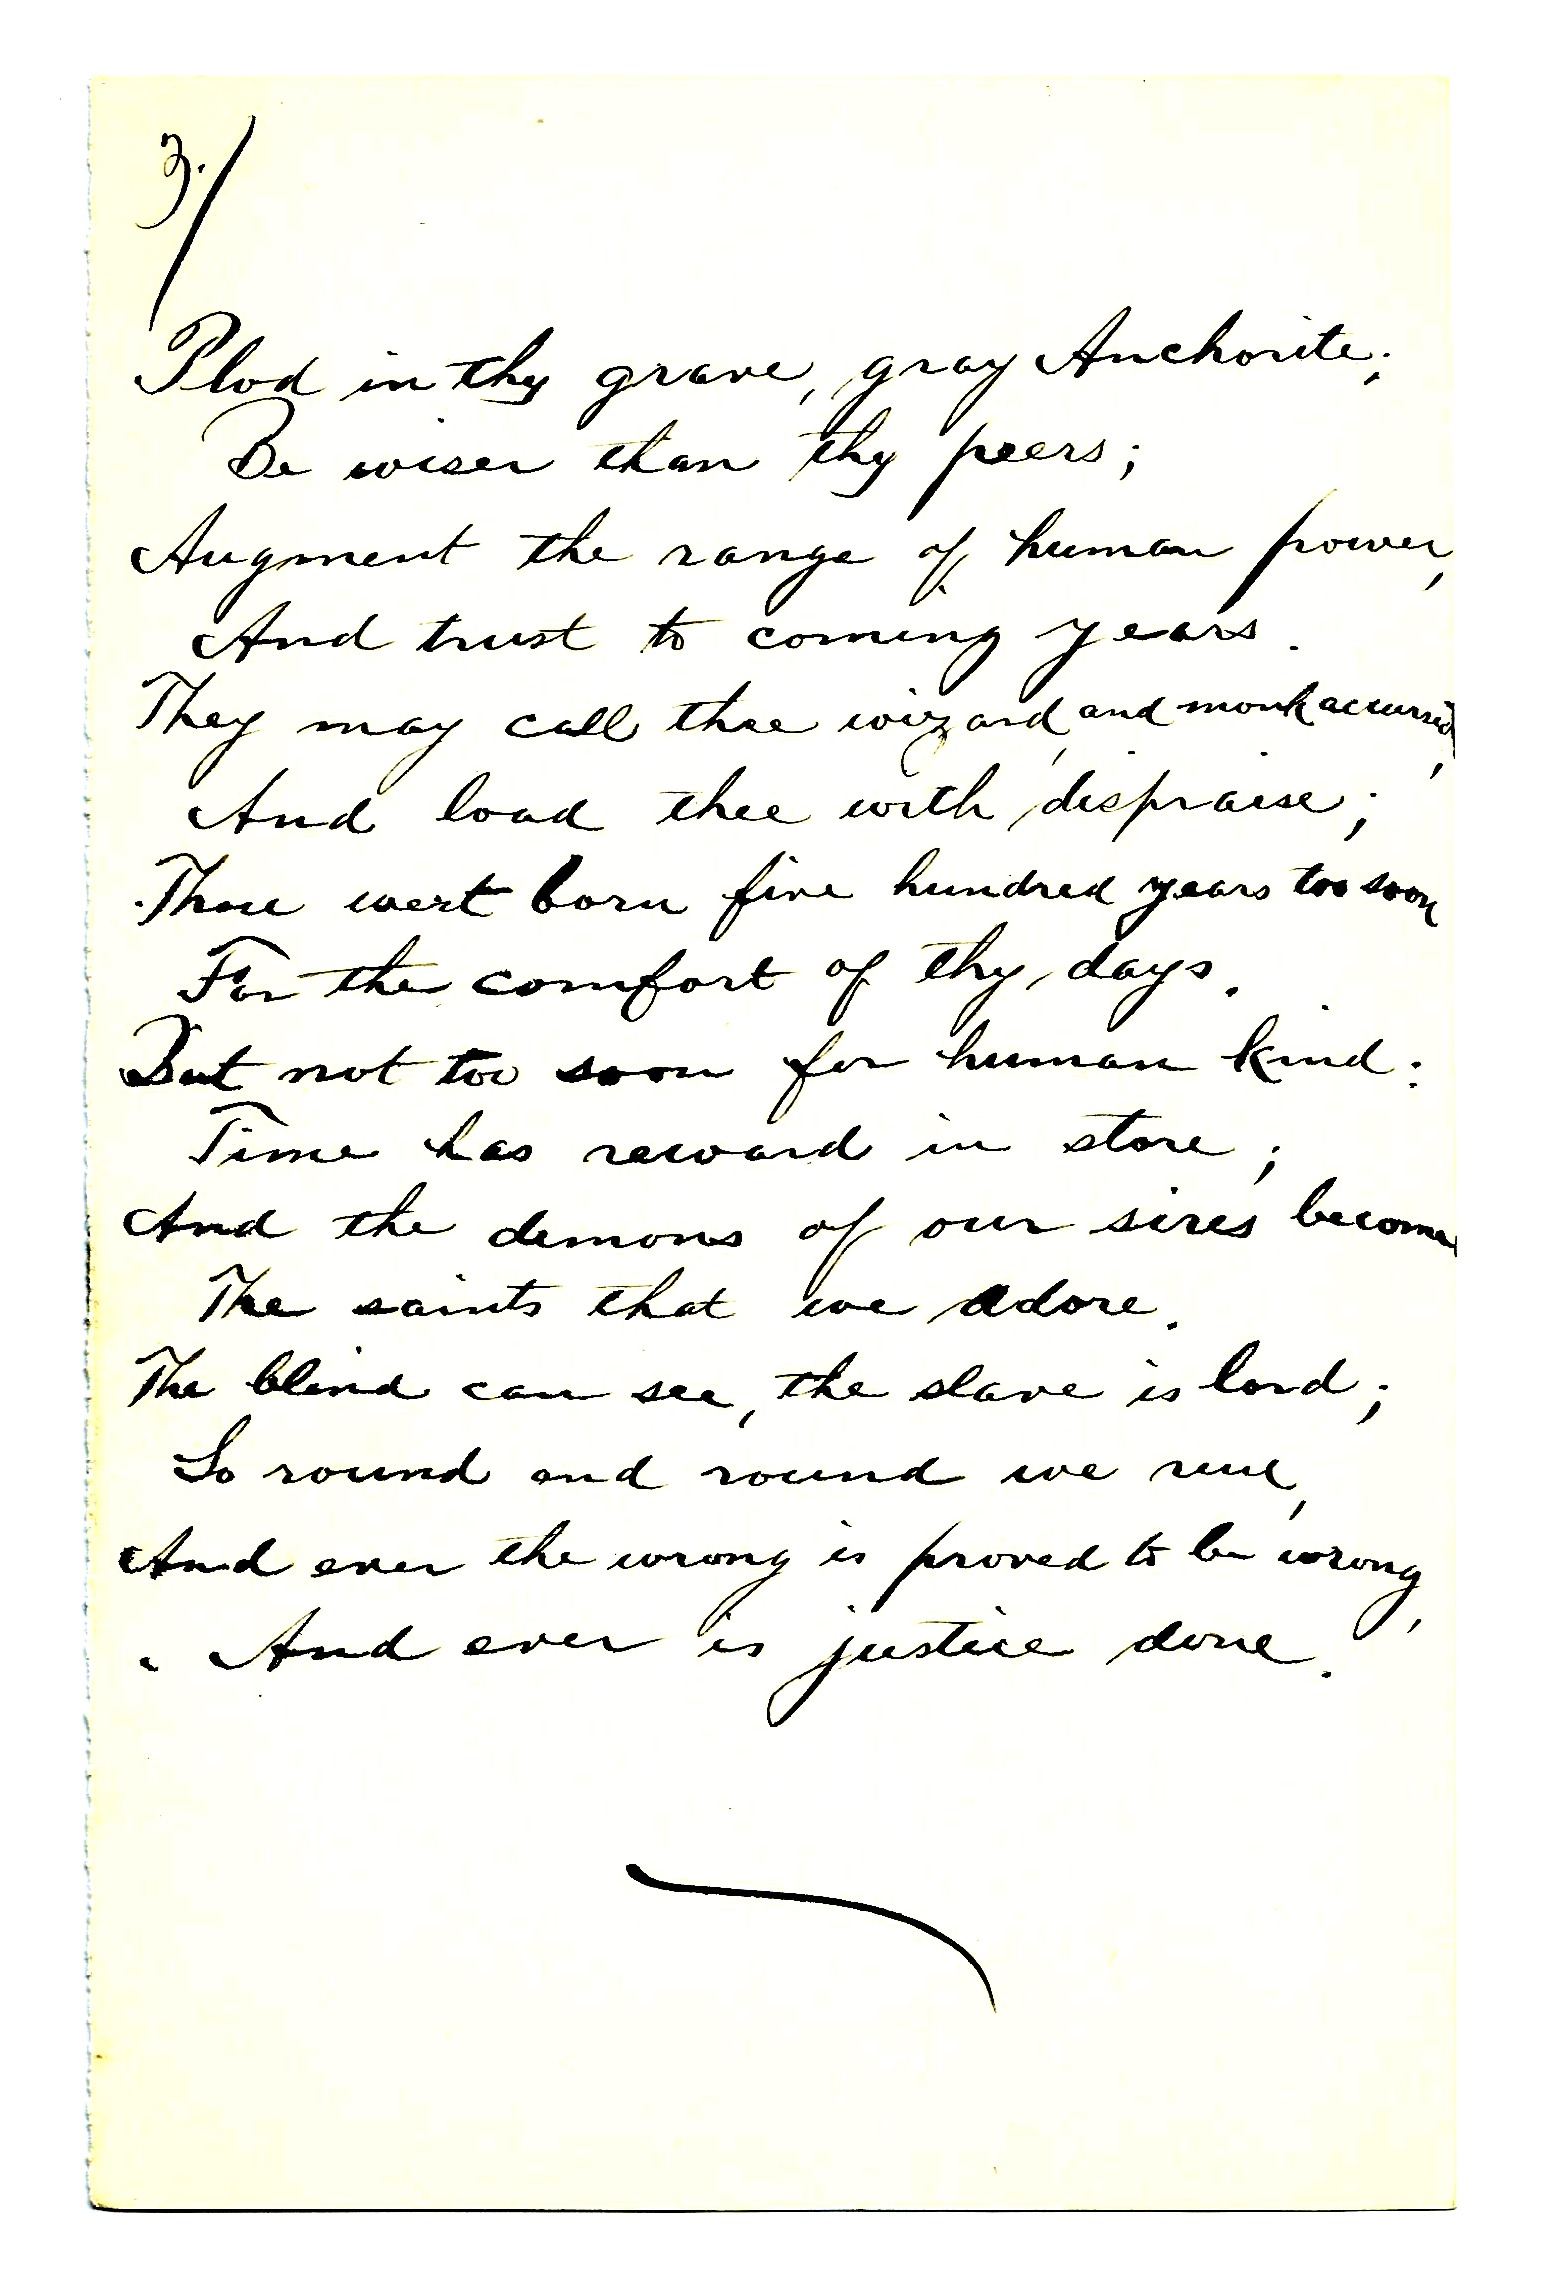 3./
Plod in thy grave, gray Anchorite;
Be wiser than thy peers;
Augment the range of human power,
And trust to coming years.
They may call thee wizard, and monk accursed,
And load thee with dispraise;
Thou wert born five hundred years too soon
For the comfort of thy days.
But not too soon for human kind:
Time has reward in store;
And the demons of our sires become
The saints that we adore.
The blind can see, the slave is lord;
So round and round we run,
And ever the wrong is proved to be wrong,
And ever is justice done.